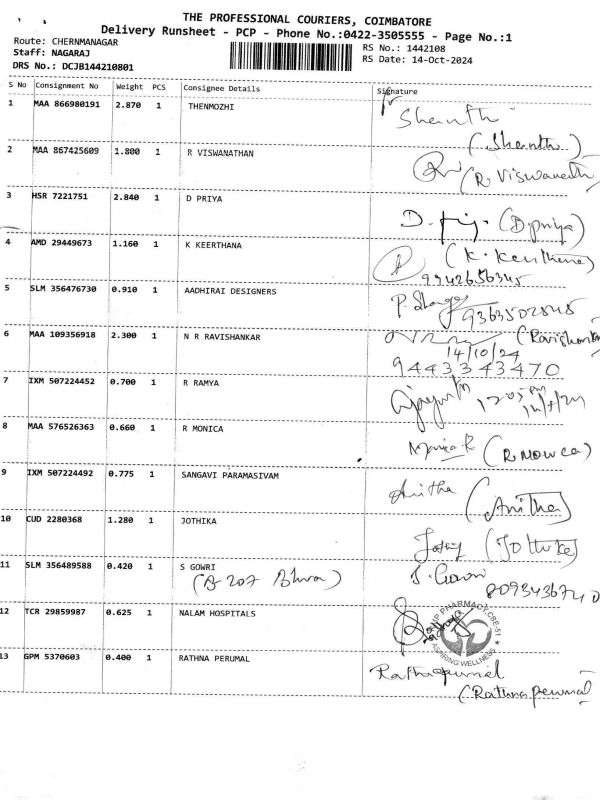 THE PROFESSIONAL COURIERS, COIMBATORE
Delivery Runsheet - PCP - Phone No.:0422-3505555 - Page No.:1
Route: CHERNMANAGAR
RS No.: 1442108
Staff: NAGARAJ
RS Date: 14-Oct-2024
DRS No.: DCJB144210801
S No Consignment No Weight PCS Consignee Details Signature
1 MAA 866980191 2.870 1 THENMOZHI Shanthi
(Shanthi)
2 MAA 867425609 1.800 1 R VISWANATHAN
(R. Viswanath
3 HSR 7221751 2.840 1 D PRIYA
D. (D.priya)
4 AMD 29449673 1.160 1 K KEERTHANA (K. Keerthana)
9942656345
5 SLM 356476730 0.910 1 AADHIRAI DESIGNERS
9363502845
6 MAA 109356918 2.300 1 N R RAVISHANKAR (Ravishanka
14/10/24
9443343470
7 IXM 507224452 0.700 1 R RAMYA
8 MAA 576526363 0.660 1 R MONICA
9 IXM 507224492 0.775 1 SANGAVI PARAMASIVAM Anitha (Anitha)
10 CUD 2280368 1.280 1 JOTHIKA
11 SLM 356489588 0.420 1 S GOWRI S. Gowri
8093436740
12 TCR 29859987 0.625 1 NALAM HOSPITALS PHARMACY, CBE-51
INSPIRING WELLNESS
13 GPM 5370603 0.400 1 RATHNA PERUMAL
(Rathna perumal